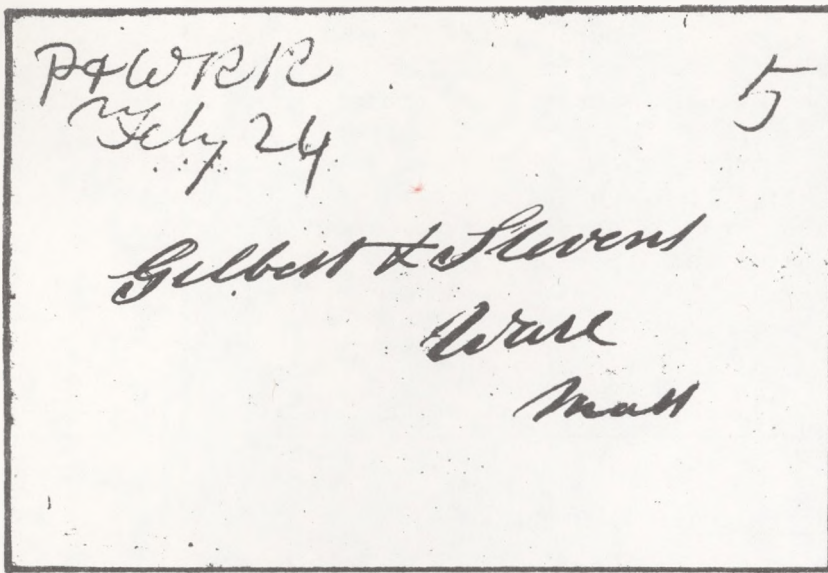 P & W R R 5
Feby 24
Gilbert & Stevens
Ware
Mass